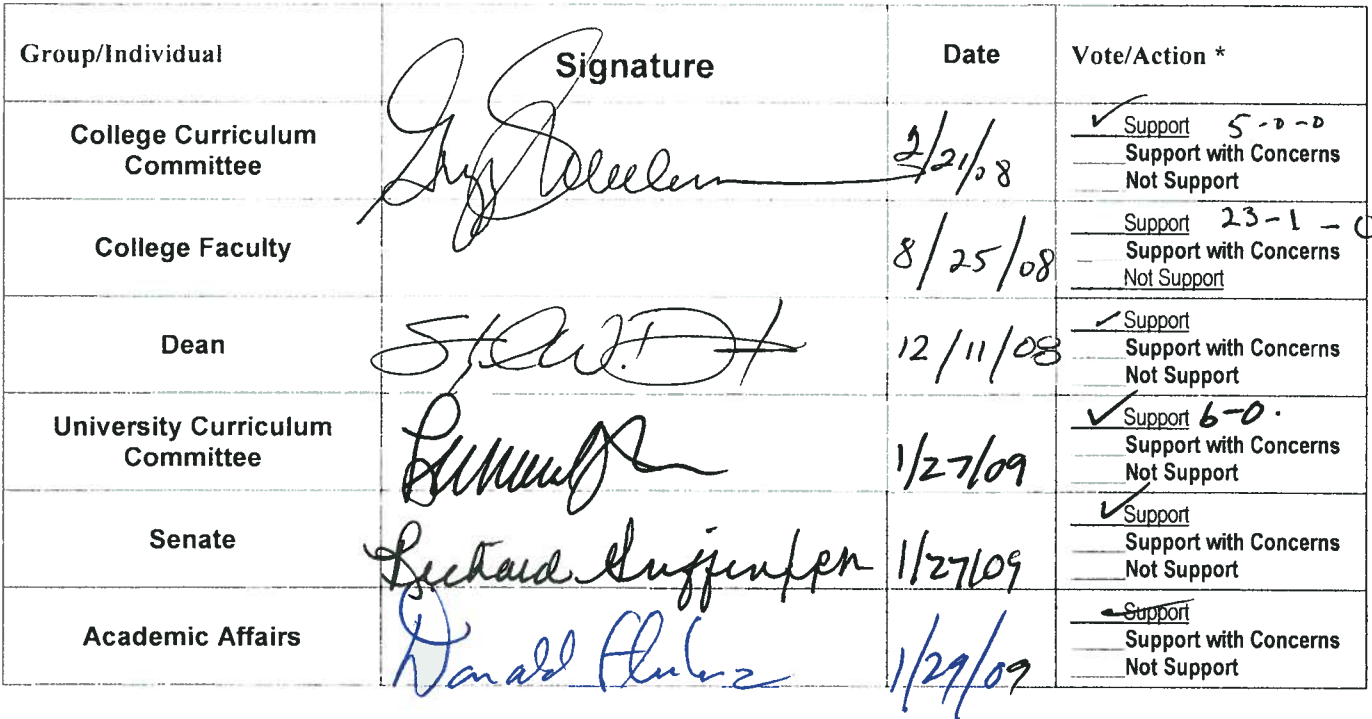 Group/Individual Signature Date Vote/Action *
College Curriculum
Committee
2/21/08
✓ Support 5-0-0
Support with Concerns
Not Support
College Faculty
8/25/08
Support 23-1-0
Support with Concerns
Not Support
Dean
12/11/08
✓ Support
Support with Concerns
Not Support
University Curriculum
Committee
1/27/09
✓ Support 6-0.
Support with Concerns
Not Support
Senate
Richard
1/27/09
✓ Support
Support with Concerns
Not Support
Academic Affairs
Donald
1/29/09
Support
Support with Concerns
Not Support